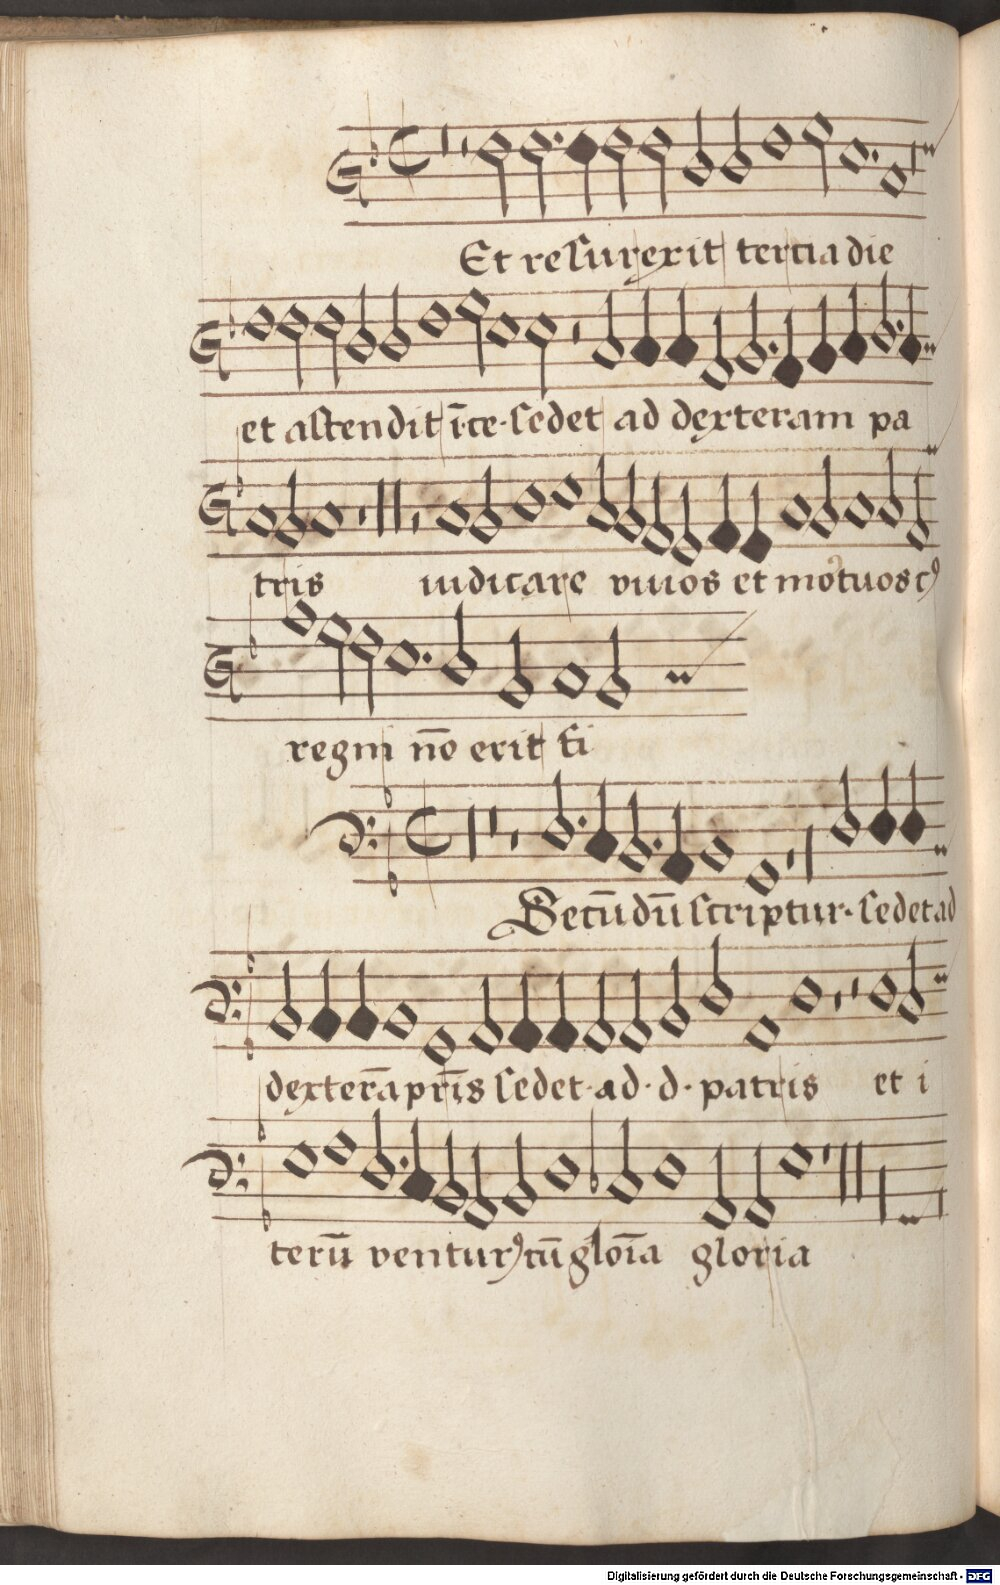 Et resurrexit tercia die
et ascendit ī·ce·sedet ad dexteram pa
tris iudicare viuos et mo᷑tuos cꝰ
regni nō erit fi
Secūdū scriptur·sedet ad
dexterā pr̄is sedet·ad·d·patris et i
terū venturꝰ cū glōia gloria
Digitalisierung gefördert durch die Deutsche Forschungsgemeinschaft - DFG